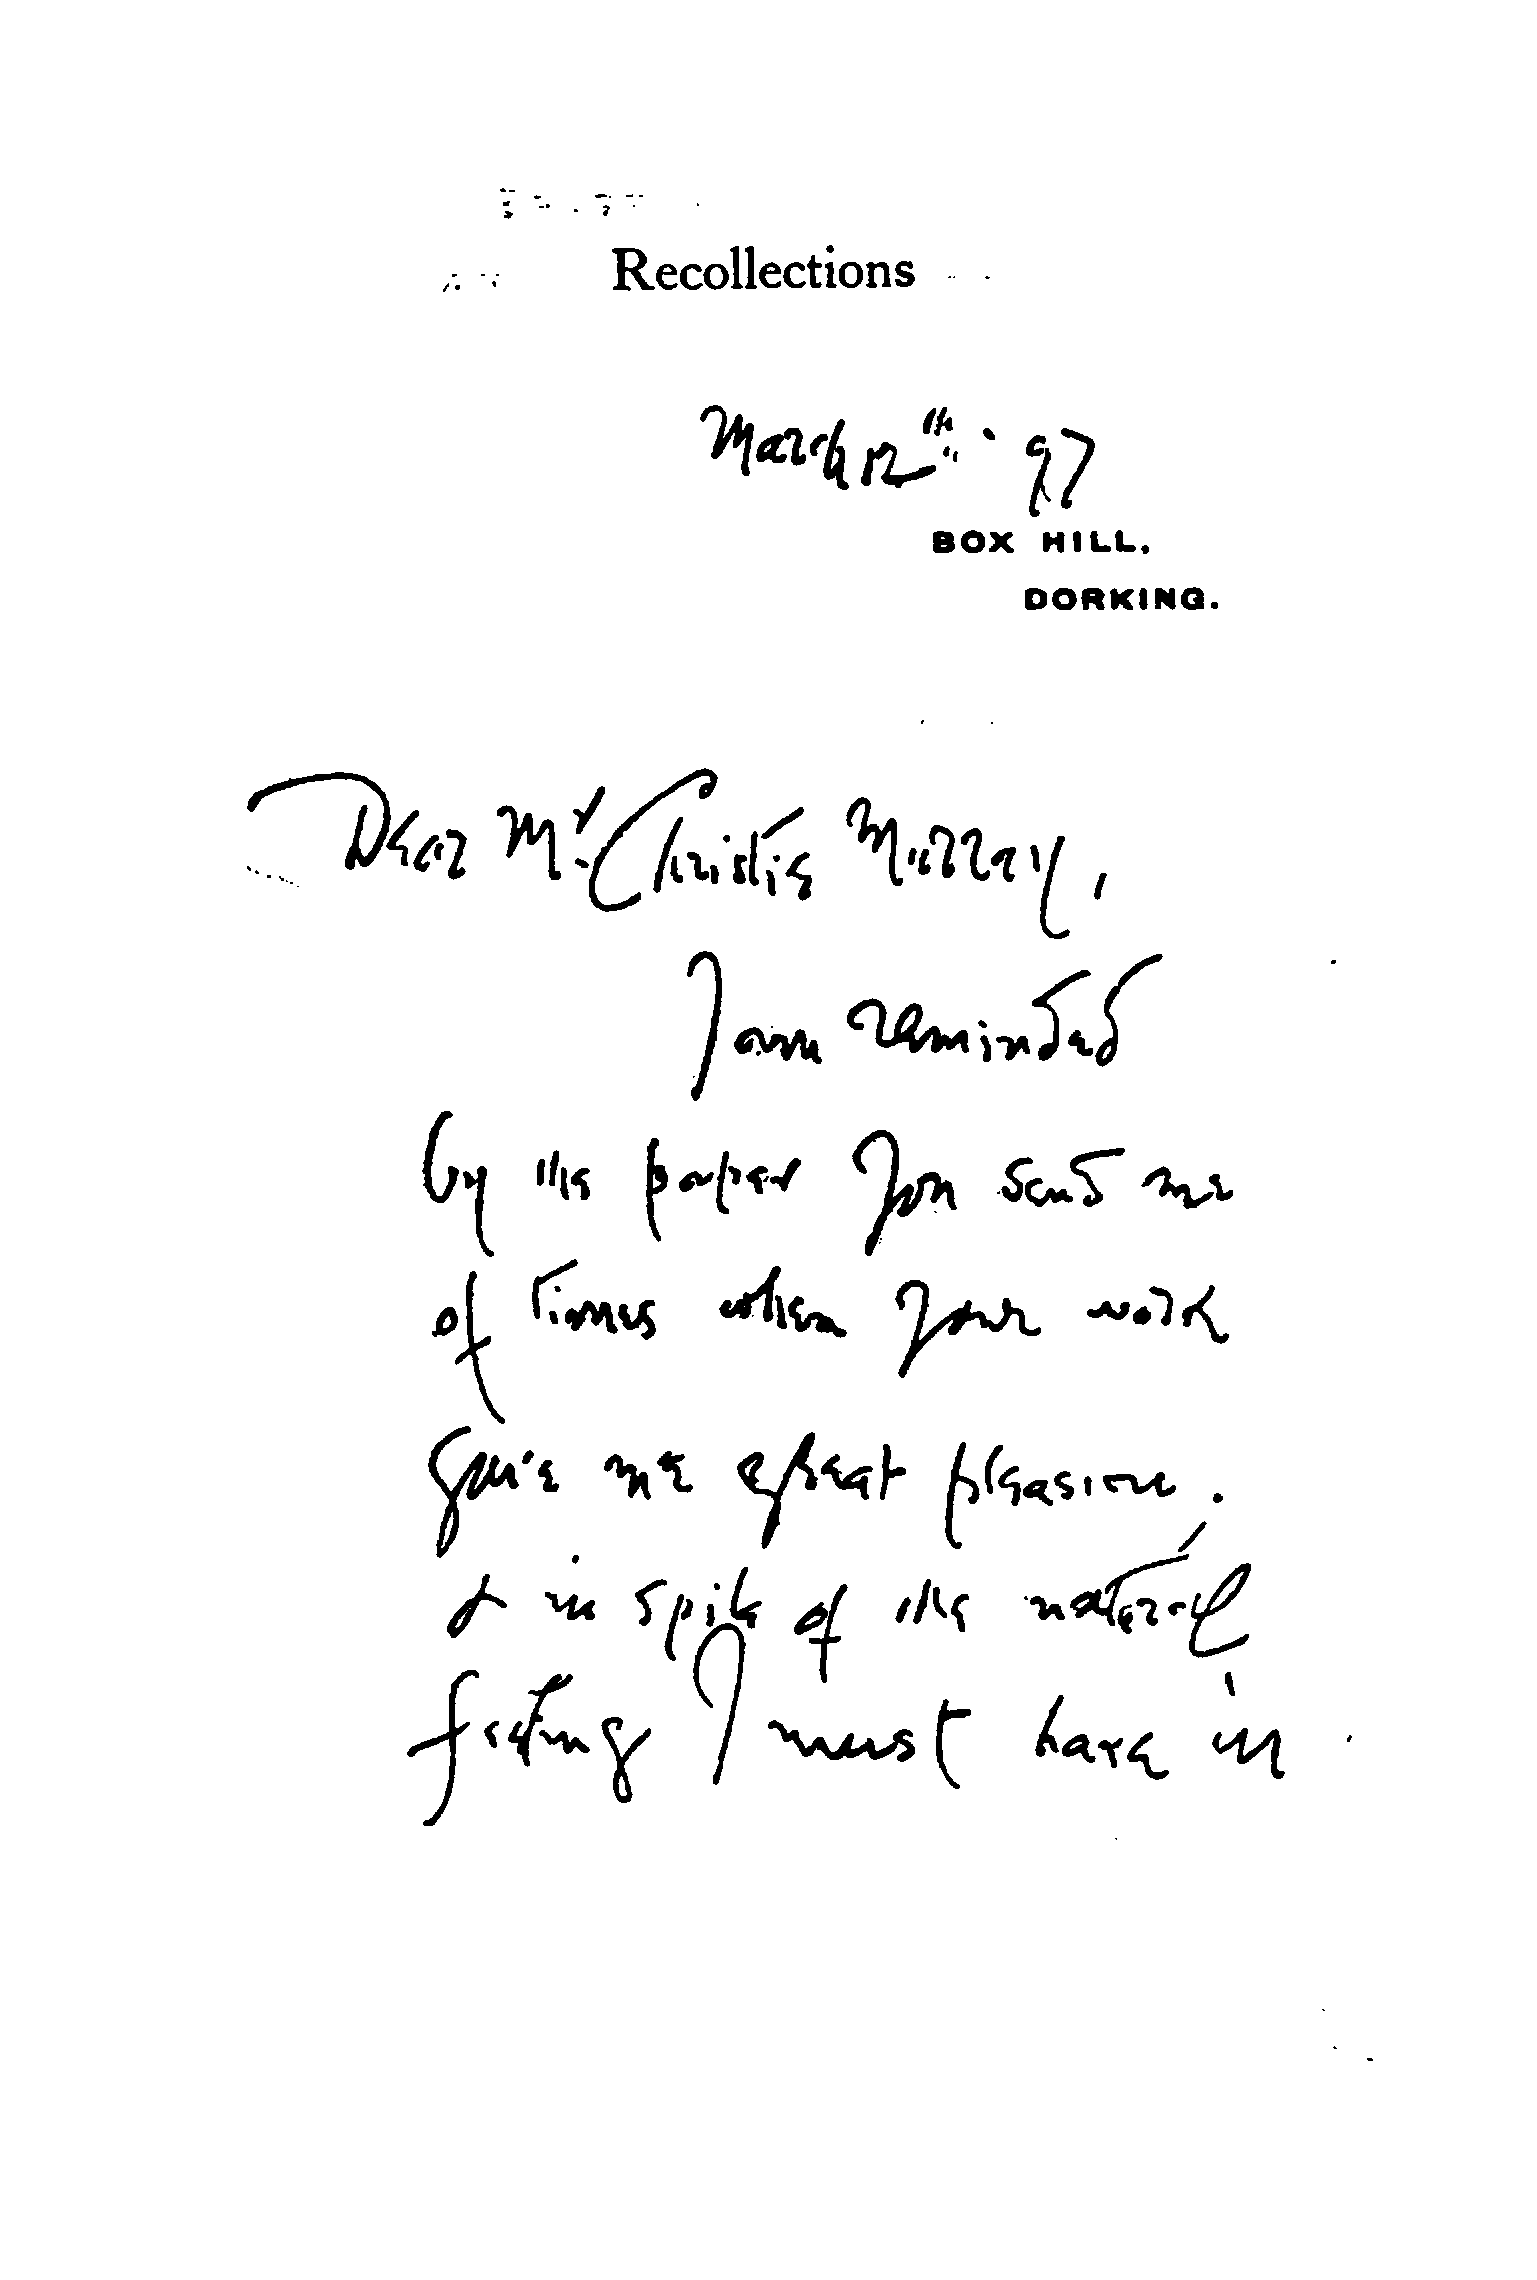 Recollections
March 12th '97
BOX HILL,
DORKING.
Dear Mr. Christie Murray,
I am reminded
by the paper you send me
of times when your work
gave me great pleasure.
& in spite of the natural
feeling I must have in